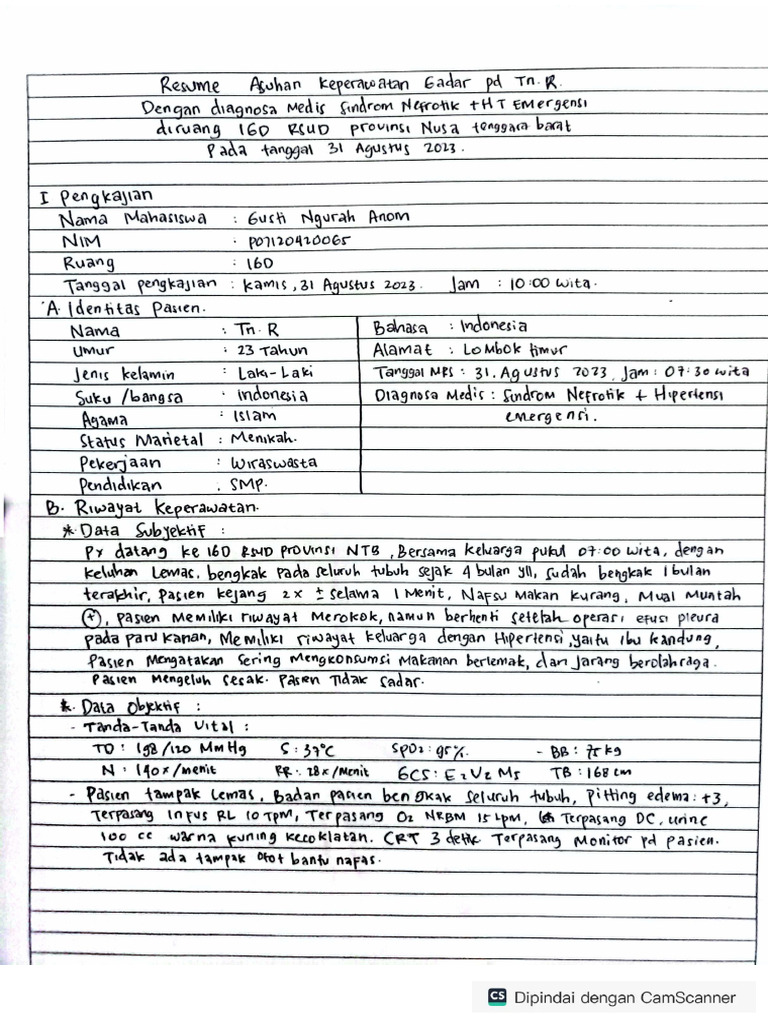 Resume Asuhan Keperawatan Gadar pd Tn. R.
Dengan diagnosa Medis Sindrom Nefrotik + HT Emergensi
diruang IGD RSUD provinsi Nusa tenggara barat
Pada tanggal 31 Agustus 2023.
I Pengkajian
Nama Mahasiswa : Gusti Ngurah Anom
NIM : P07120420065
Ruang : IGD
Tanggal pengkajian : Kamis, 31 Agustus 2023. Jam : 10:00 wita.
A. Identitas Pasien.
Nama : Tn. R
Umur : 23 Tahun
Jenis kelamin : Laki-Laki
Suku /bangsa : Indonesia
Agama : Islam
Status Marietal : Menikah.
Pekerjaan : Wiraswasta
Pendidikan : SMP.
Bahasa : Indonesia
Alamat : Lombok timur
Tanggal MRS : 31. Agustus 2023, Jam : 07:30 wita
Diagnosa Medis : Sindrom Nefrotik + Hipertensi
emergensi.
B. Riwayat Keperawatan.
* Data Subyektif :
Px datang ke IGD RSUD provinsi NTB, Bersama keluarga pukul 07:00 wita, dengan
keluhan Lemas, bengkak pada seluruh tubuh sejak 4 bulan yll, sudah bengkak 1 bulan
terakhir, pasien kejang 2x ± selama 1 Menit, Nafsu Makan kurang, Mual Muntah
(+), pasien memiliki riwayat Merokok, namun berhenti setelah operasi efusi pleura
pada paru kanan, Memiliki riwayat keluarga dengan Hipertensi, yaitu Ibu kandung,
pasien Mengatakan Sering Mengkonsumsi Makanan berlemak, dan jarang berolahraga.
Pasien Mengeluh sesak. Pasien Tidak sadar.
* Data Objektif :
- Tanda-Tanda Vital :
TD : 198/120 MmHg S : 37°C SpO2 : 95%. - BB : 75 kg
N : 140x/menit RR : 28x/Menit GCS : E2 V2 M5 TB : 168 cm
- Pasien tampak Lemas, Badan pasien bengkak seluruh tubuh, Pitting edema : +3,
Terpasang Infus RL 10 Tpm, Terpasang O2 NRBM 15 Lpm, Terpasang DC, urine
100 cc warna kuning kecoklatan. CRT 3 detik. Terpasang Monitor pd pasien.
Tidak ada tampak Otot bantu nafas.
CS Dipindai dengan CamScanner